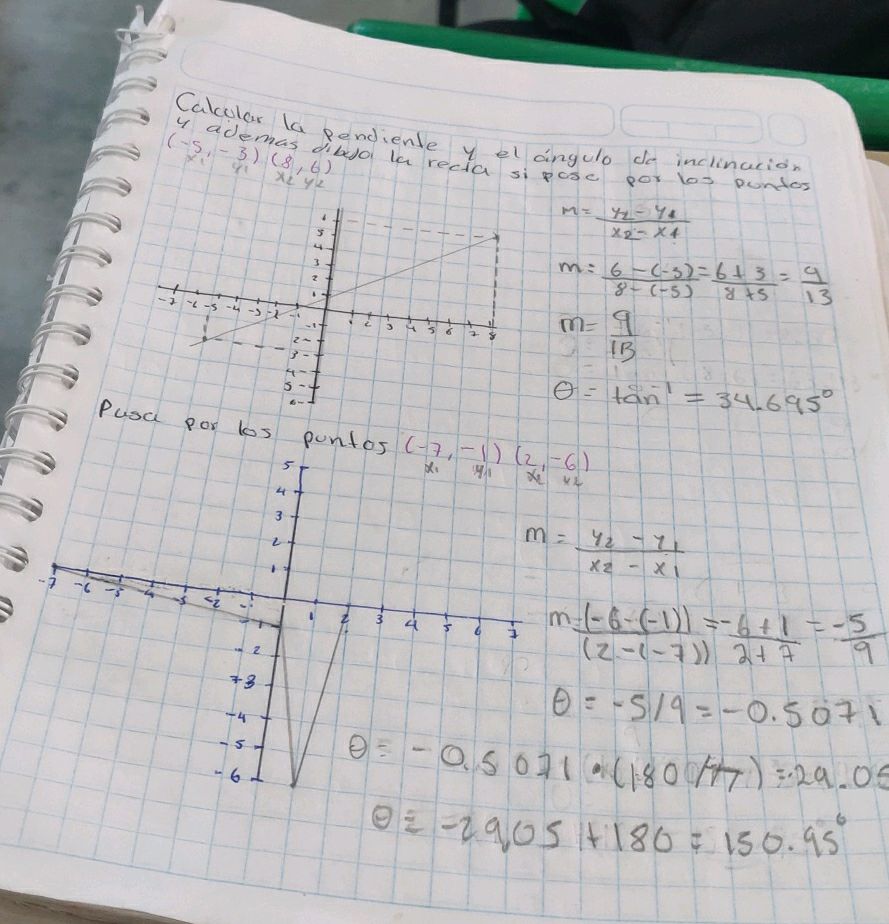 Calcular la pendiente y el ángulo de inclinación
y ademas dibujo la recta si pasa por los puntos
(-5, -3) (8, 6)
x1 y1 x2 y2
m = y2 - y1 / x2 - x1
m = 6 - (-3) / 8 - (-5) = 6 + 3 / 8 + 5 = 9 / 13
m = 9 / 13
θ = tan⁻¹ = 34.695°
6
5
4
3
2
1
-7 -6 -5 -4 -3 -2 -1
1 2 3 4 5 6 7 8
-1
2-
3-
4-
5-
6-
Pasa por los puntos (-7, -1) (2, -6)
x1 y1 x2 y2
5
4
3
2
1
-7 -6 -5 -4 -3 -2 -
1 2 3 4 5 6 7
- 2
-3
-4
-5
-6
m = y2 - y1 / x2 - x1
m = (-6 - (-1)) / (2 - (-7)) = -6 + 1 / 2 + 7 = -5 / 9
θ = -5/9 = -0.5071
θ = -0.5071 • (180/π) = -29.05
θ = -29,05 + 180 = 150.95°